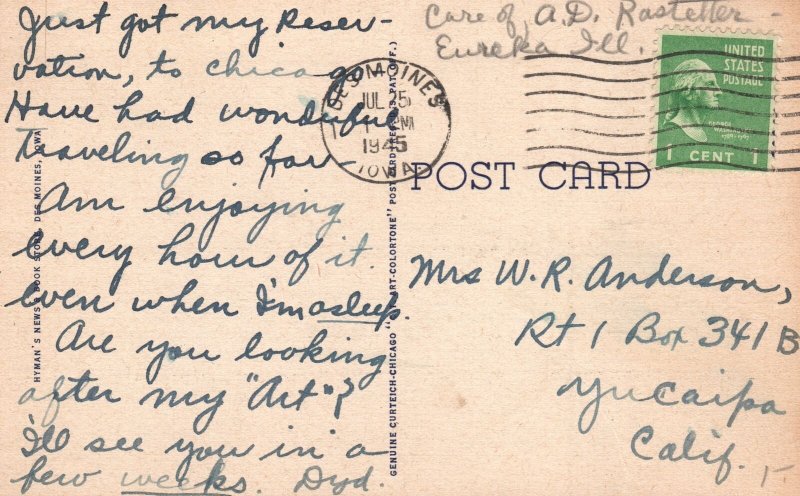 Just got my Reser-
vation, to chicago.
Have had wonderful
traveling so far-
Am enjoying
every hour of it.
even when I'm asleep.
Are you looking
after my "Art"?
I'll see you in a
few weeks.
Care of A.D. Rastetter -
Eureka Ill.
DES MOINES
JUL 25
PM
1945
IOWA
UNITED
STATES
POSTAGE
1 CENT 1
POST CARD
Mrs W. R. Anderson,
Rt 1 Box 341 B
Yucaipa
Calif.
HYMAN'S NEWS & BOOK STORE, DES MOINES, IOWA
GENUINE CURTEICH-CHICAGO "C.T. ART-COLORTONE" POST CARD (REG. U.S. PAT. OFF.)